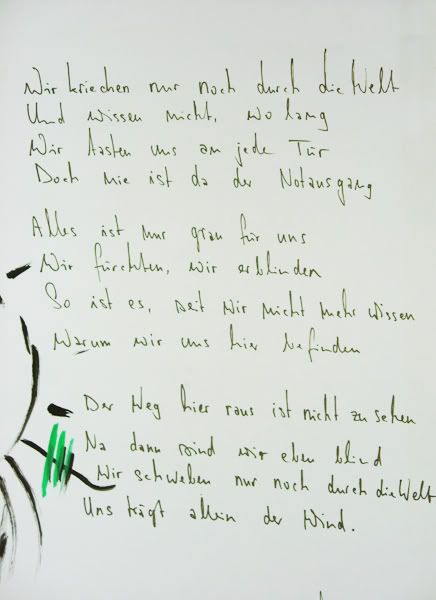 Wir kriechen nur noch durch die Welt
Und wissen nicht, wo lang
Wir tasten uns an jede Tür
Doch nie ist da der Notausgang
Alles ist nur grau für uns
Wir fürchten, wir erblinden
So ist es, seit wir nicht mehr wissen
Warum wir uns hier befinden
Der Weg hier raus ist nicht zu sehen
Na dann sind wir eben blind
Wir schweben nur noch durch die Welt
Uns trägt allein der Wind.